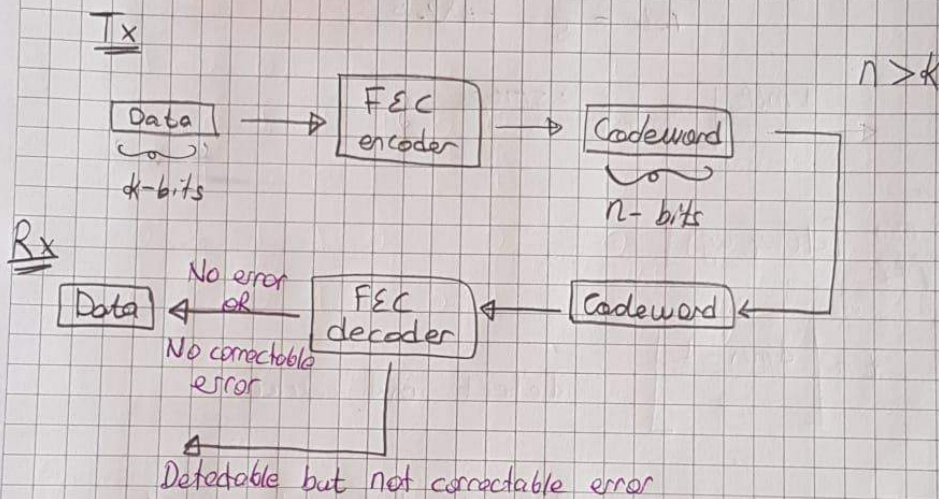 Tx
n>k
Data
FEC
encoder
Codeword
k-bits
n- bits
Rx
No error
OR
No correctable
error
Data
FEC
decoder
Codeword
Detectable but not correctable error